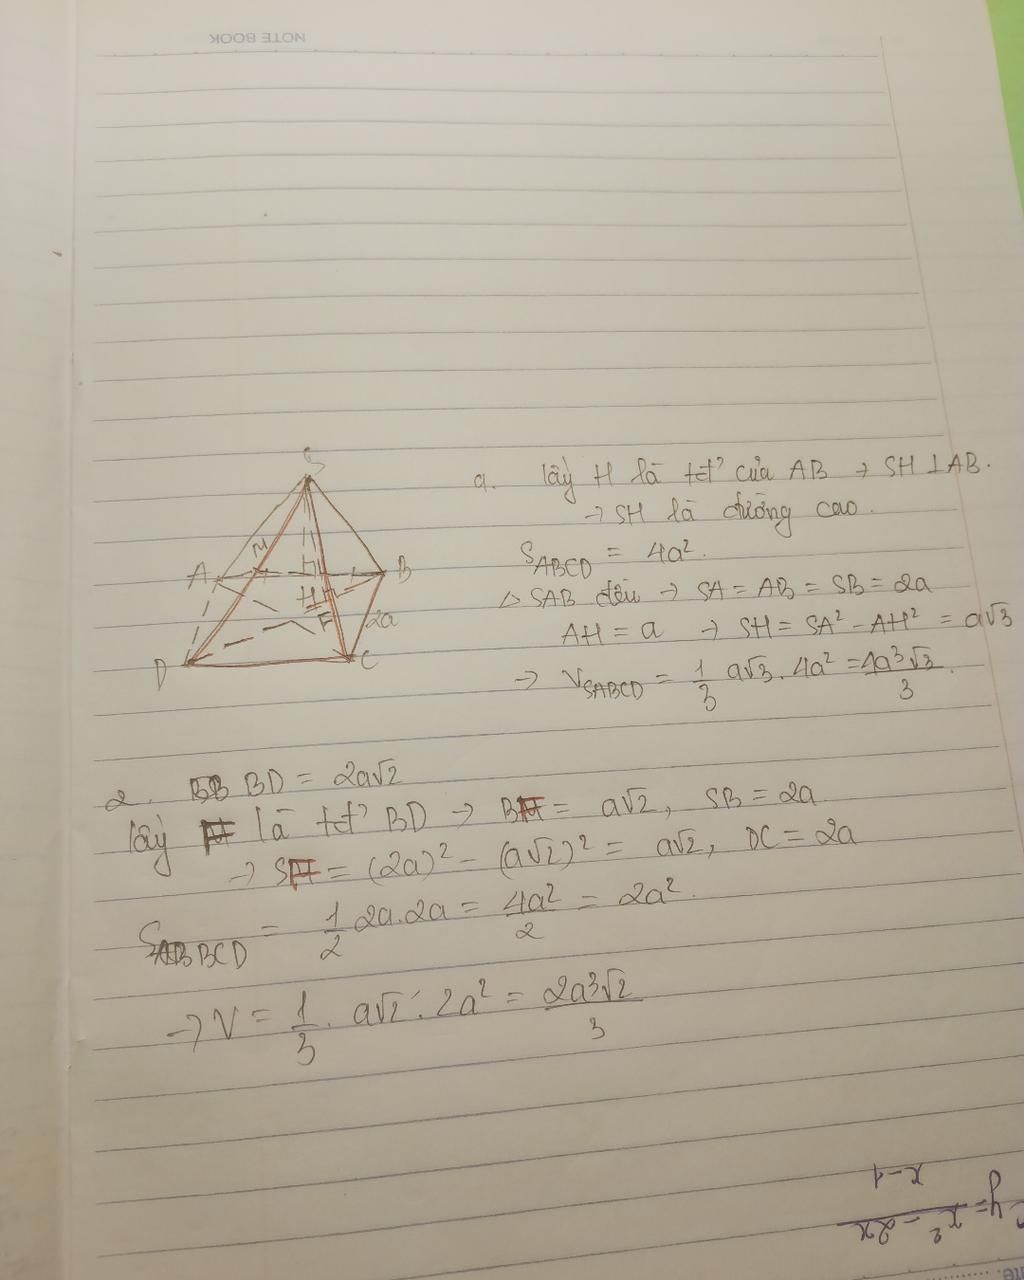 NOTE BOOK
S
M
A
H
B
H
F
2a
D
C
a. lấy H là tđ' của AB → SH ⊥ AB.
→ SH là đường cao.
S_ABCD = 4a².
△ SAB đều → SA = AB = SB = 2a
AH = a → SH = SA² - AH² = a√3
→ V_SABCD = 1/3 a√3 . 4a² = 4a³√3/3.
2. BD = 2a√2
lấy H là tđ' BD → BH = a√2, SB = 2a
→ SH = (2a)² - (a√2)² = a√2, DC = 2a
S_BCD = 1/2 2a.2a = 4a²/2 = 2a².
→ V = 1/3 . a√2 . 2a² = 2a³√2/3
y = x² - 2x / x-1